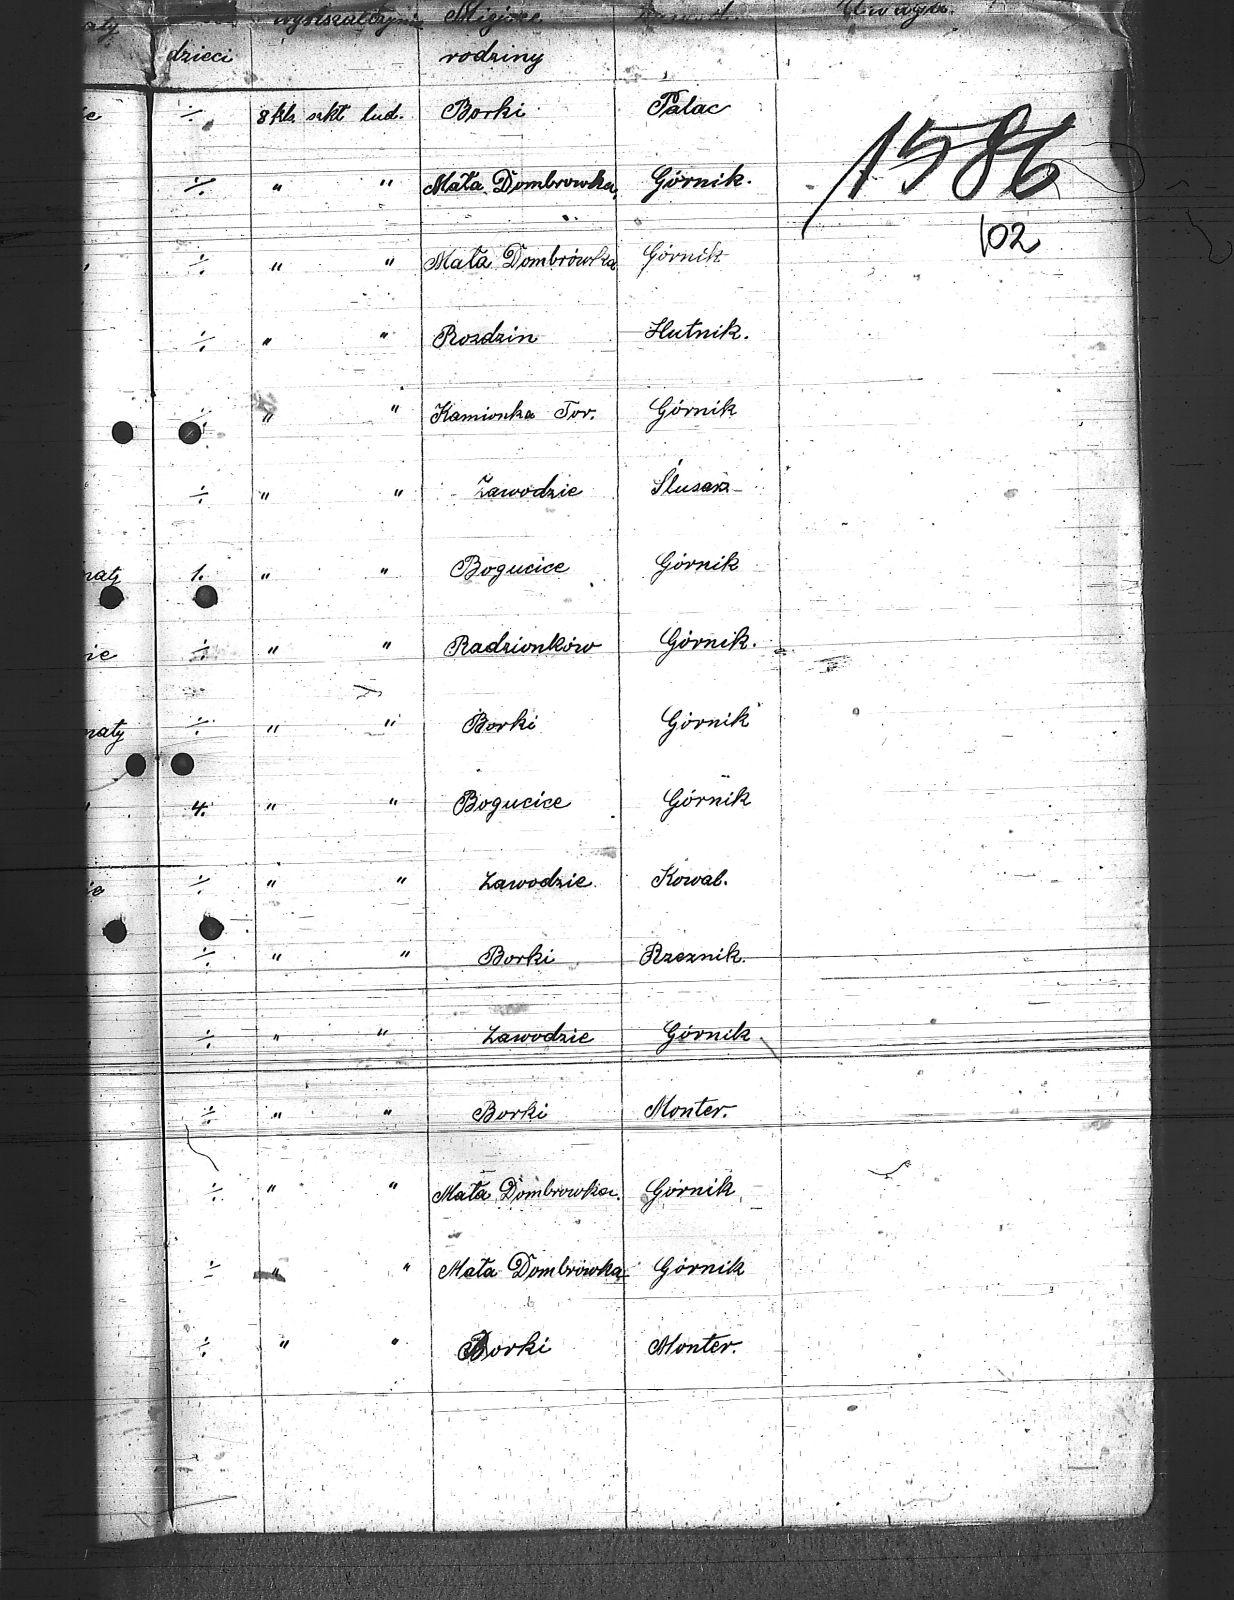 wykształcenie Miejsce Uwaga.
dzieci rodziny
÷ 8 kla szkł lud. Borki Palac
÷ " " Mała Dombrowka, Górnik.
1586
102
÷ " " Mała Dombrówka Górnik
÷ " " Rozdzin Hutnik.
÷ " " Kamionka Tor. Górnik
÷ " " Zawodzie Ślusarz
naty 1. " " Bogucice Górnik
÷ " " Radzionków Górnik.
naty ÷ " " Borki Górnik
" 4. " " Bogucice Górnik
÷ " " Zawodzie Kowal.
÷ " " Borki Rzeznik.
÷ " " Zawodzie Górnik
÷ " " Borki Monter.
÷ " " Mała Dombrowka. Górnik
÷ " " Mała Dombrówka Górnik
÷ " " Borki Monter.